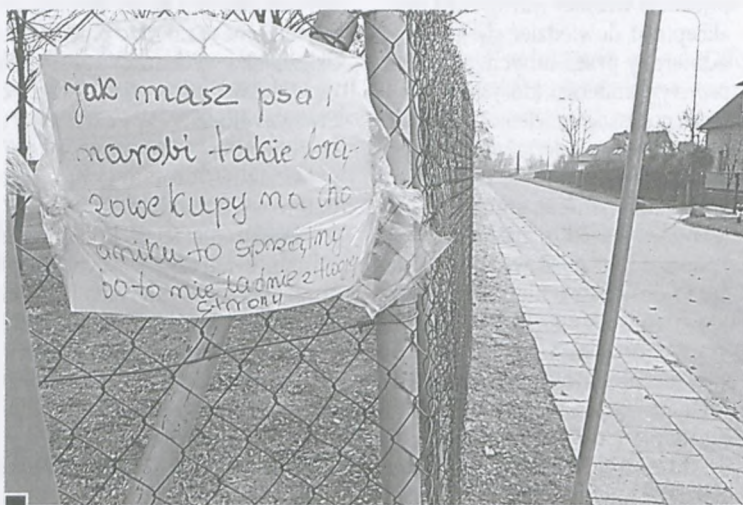 jak masz psa i
narobi takie brą-
zowe kupy na cho
dniku to sprzątnij
bo to nie ładnie z twojej
strony